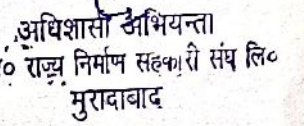 अधिशासी अभियन्ता
० राज्य निर्माण सहकारी संघ लि०
मुरादाबाद